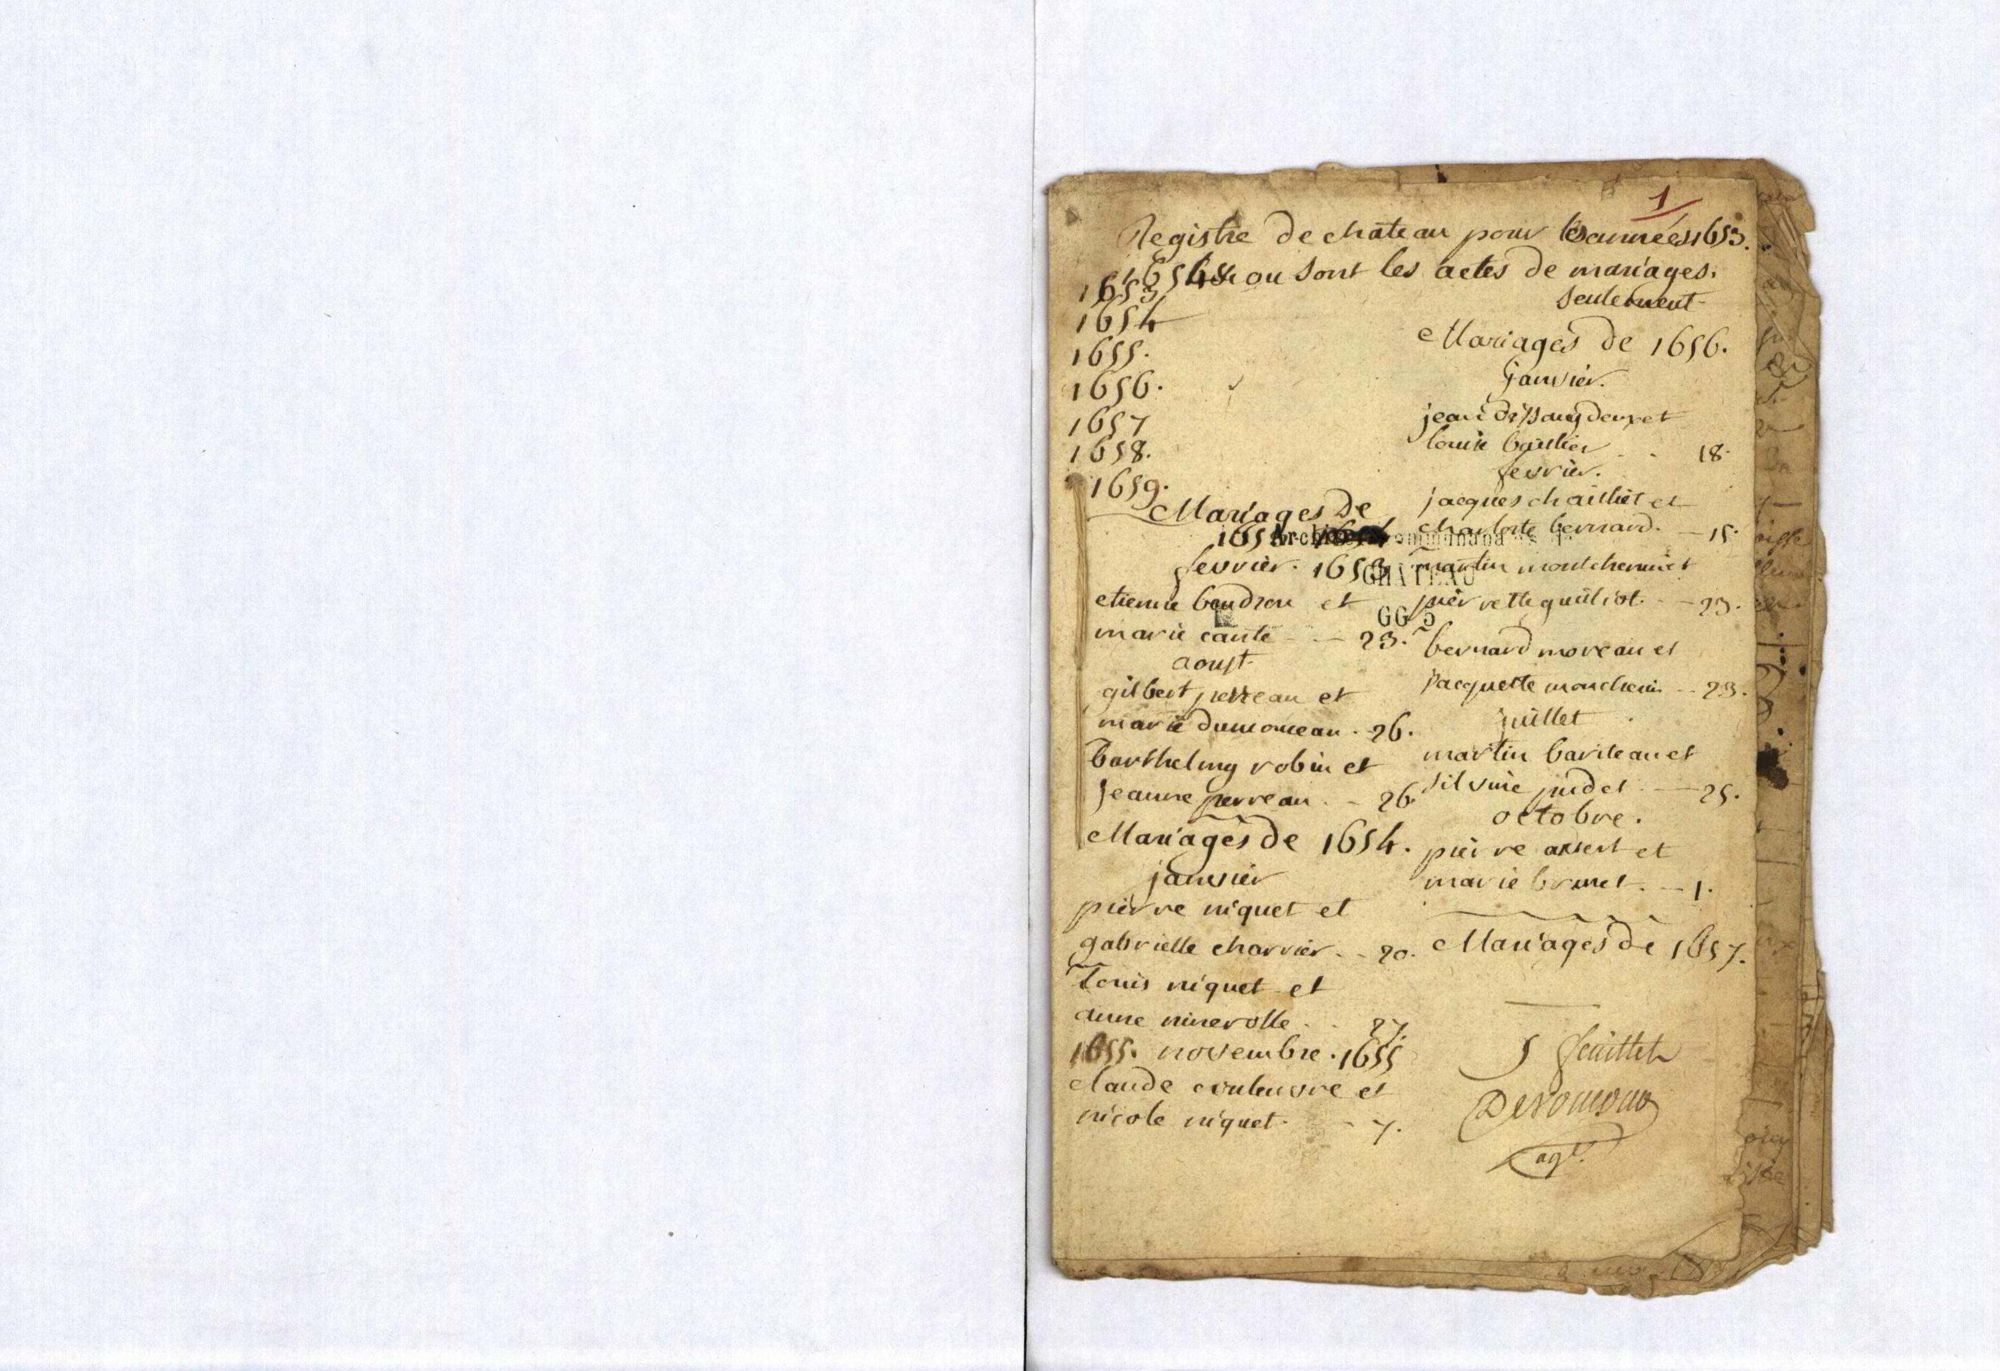 1
Registre de chateau pour les années 1653.
1654 & ou sont les actes de mariages.
seulement
1653
1654
1655.
1656.
1657
1658.
1659.
Mariages de
1653
fevrier. 1653
etienne boudron et
marie cante - - 23.
aoust
gilbert perreau et
marie dumoneau. - 26.
barthelmy robin et
jeanne perreau. - 26
Mariages de 1654.
janvier
pierre niquet et
gabrielle charrier. - 20.
Louis niquet et
anne minerolle. . 27.
1655. novembre. 1655
claude couleuvre et
nicole niquet. - 7.
Mariages de 1656.
janvier.
jean et
louise . . 18.
fevrier.
jacques chailliet et
charlotte bernard. - 15.
Archives
CHATEAU
GG 5
martin montchenin et
pierrette guilliot. - 23.
bernard moreau et
jacquette moncherin - 23.
juillet
martin bariteau et
silvine judet. - 25.
octobre.
pierre et
marie brunet. - 1.
Mariages de 1657.
5 feuillets
agt.